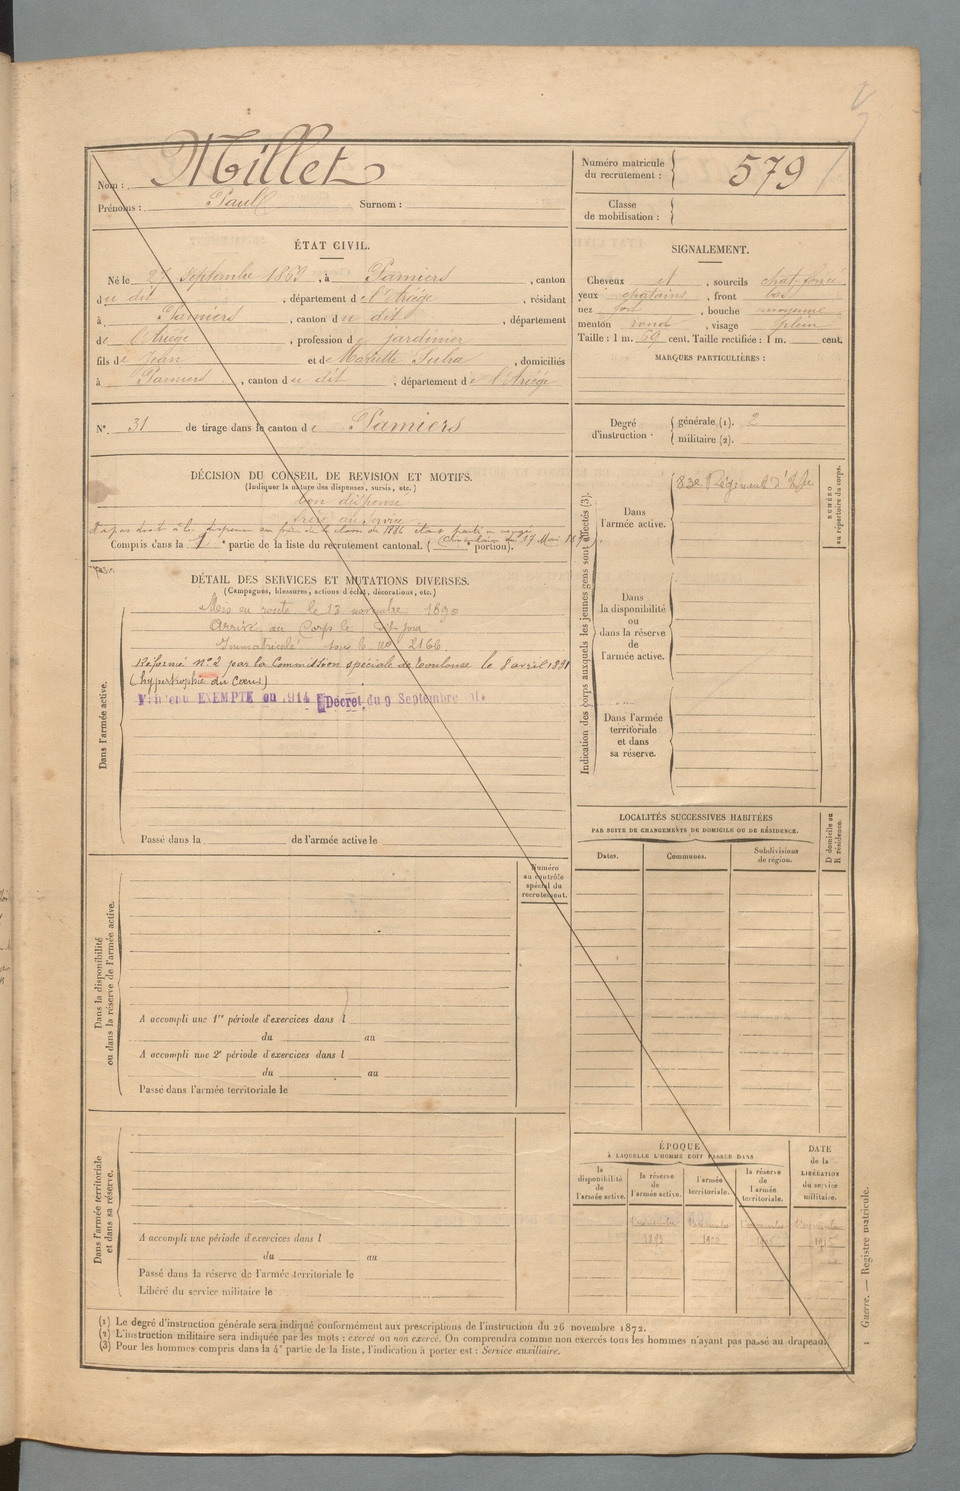 Nom : Millet
Prénoms : Paul Surnom :
Numéro matricule du recrutement : 579
Classe de mobilisation :
ÉTAT CIVIL.
Né le 27 septembre 1869, à Pamiers, canton
du dit, département de l'Ariège, résidant
à Pamiers, canton du dit, département
de l'Ariège, profession de jardinier
fils de Jean et de Mariette, domiciliés
à Pamiers, canton du dit, département de l'Ariège
N° 31 de tirage dans le canton de Pamiers
DÉCISION DU CONSEIL DE REVISION ET MOTIFS.
(Indiquer la nature des dispenses, sursis, etc.)
bon dispensé
frère au service
Compris dans la 1e partie de la liste du recrutement cantonal. ( e portion).
DÉTAIL DES SERVICES ET MUTATIONS DIVERSES.
(Campagnes, blessures, actions d'éclat, décorations, etc.)
Dans l'armée active.
Mis en route le 13 novembre 1890
Arrivé au Corps le dit jour
Immatriculé sous le no 2166
Réformé n°2 par la Commission spéciale de Toulouse le 8 avril 1891
(hypertrophie du Cœur)
Maintenu EXEMPTÉ en 1914 Décret du 9 Septembre
Passé dans la de l'armée active le
Numéro au contrôle spécial du recrutement.
Dans la disponibilité
ou dans la réserve de l'armée active.
A accompli une 1re période d'exercices dans l
du au
A accompli une 2e période d'exercices dans l
du au
Passé dans l'armée territoriale le
Dans l'armée territoriale
et dans sa réserve.
A accompli une période d'exercices dans l
du au
Passé dans la réserve de l'armée territoriale le
Libéré du service militaire le
SIGNALEMENT.
Cheveux et, sourcils chat. foncé
yeux chatains, front bas
nez fort, bouche moyenne
menton rond, visage plein
Taille : 1 m. 69 cent. Taille rectifiée : 1 m. cent.
MARQUES PARTICULIÈRES :
Degré d'instruction. générale (1). 2
militaire (2).
Indication des corps auxquels les jeunes gens sont affectés (3).
Dans
l'armée active.
83e Régiment d'Infie
NUMÉRO
au répertoire du corps.
Dans
la disponibilité
ou
dans la réserve
de
l'armée active.
Dans l'armée
territoriale
et dans
sa réserve.
LOCALITÉS SUCCESSIVES HABITÉES
PAR SUITE DE CHANGEMENTS DE DOMICILE OU DE RÉSIDENCE.
Dates.
Communes.
Subdivisions de région.
D domicile ou
R résidence.
ÉPOQUE
À LAQUELLE L'HOMME DOIT PASSER DANS
la disponibilité de l'armée active.
la réserve de l'armée active.
l'armée territoriale.
la réserve de l'armée territoriale.
DATE de la LIBÉRATION du service militaire.
1893
(1) Le degré d'instruction générale sera indiqué conformément aux prescriptions de l'instruction du 26 novembre 1872.
(2) L'instruction militaire sera indiquée par les mots : exercé ou non exercé. On comprendra comme non exercés tous les hommes n'ayant pas passé au drapeau.
(3) Pour les hommes compris dans la 4e partie de la liste, l'indication à porter est : Service auxiliaire.
1 Guerre. — Registre matricule.